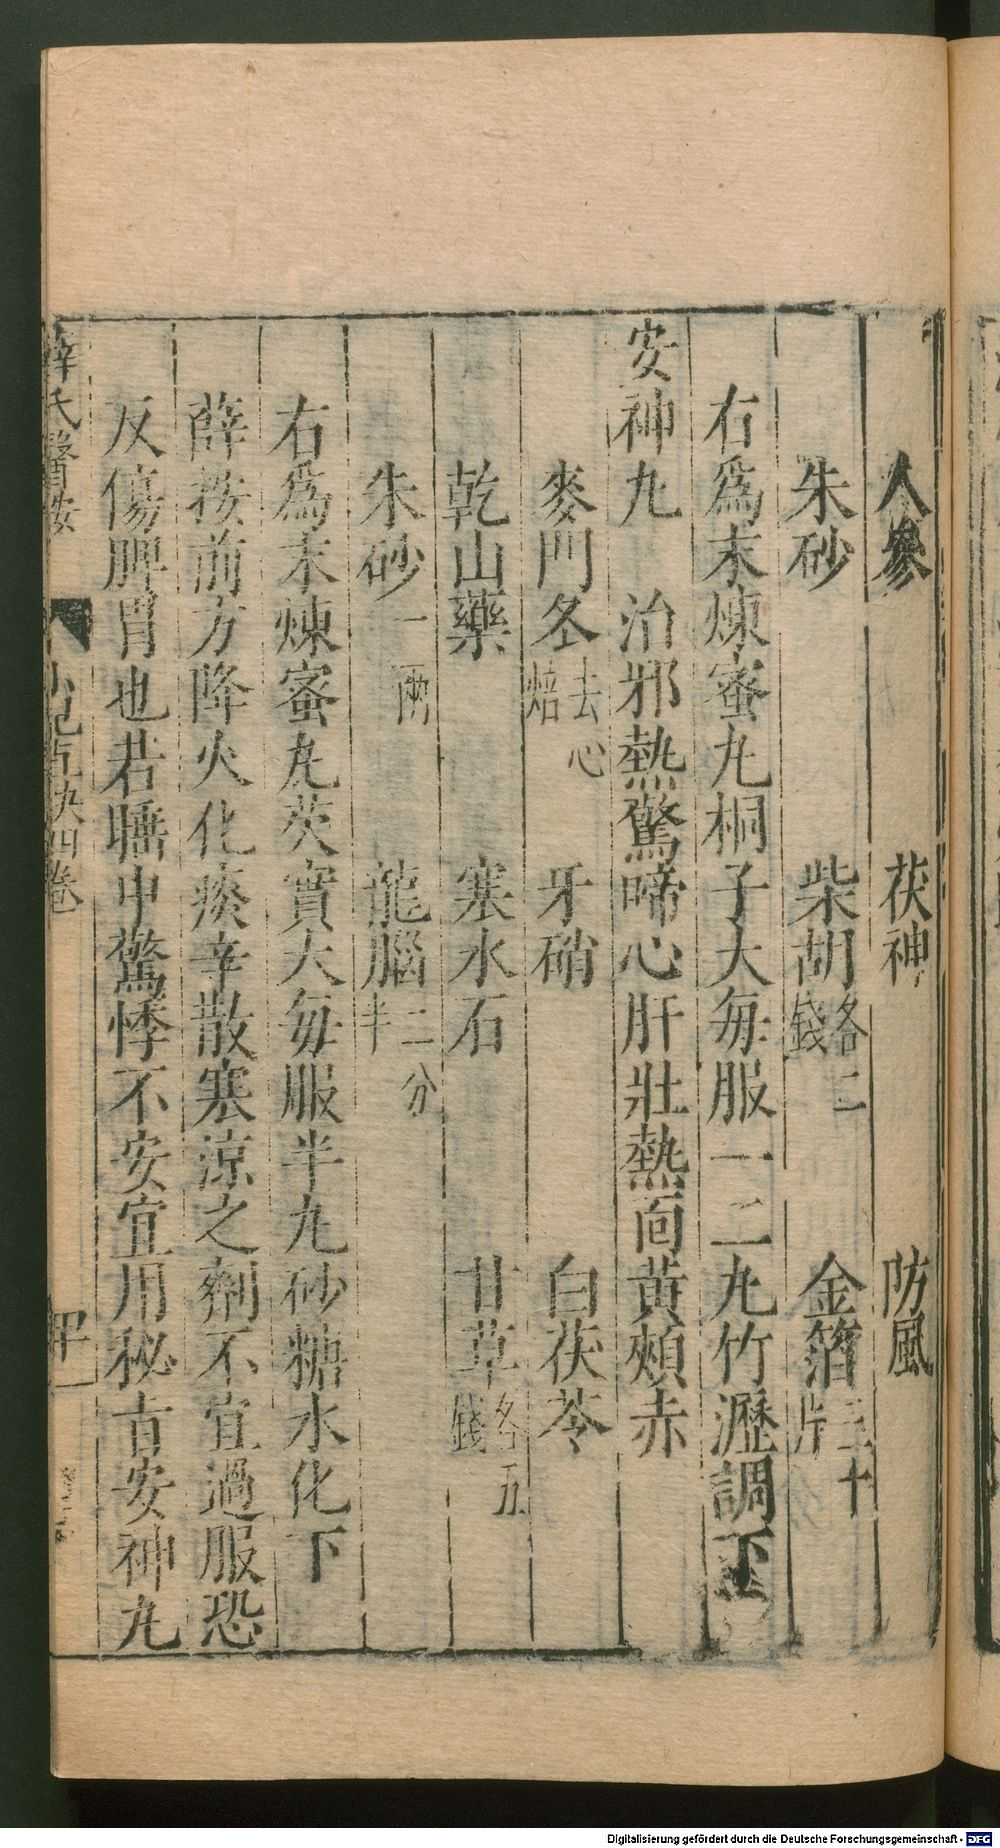 人參　茯神　防風
朱砂　柴胡各二錢　金箔三十片
右爲末煉蜜丸桐子大每服一二丸竹瀝調下
安神丸　治邪熱驚啼心肝壯熱面黃頰赤
麥門冬去心焙　牙硝　白茯苓
乾山藥　寒水石　甘草各五錢
朱砂一兩　龍腦二分半
右爲末煉蜜丸芡實大每服半丸砂糖水化下
薛按前方降火化痰辛散寒涼之劑不宜過服恐
反傷脾胃也若睡中驚悸不安宜用秘旨安神丸
薛氏醫按　四卷
Digitalisierung gefördert durch die Deutsche Forschungsgemeinschaft - DFG